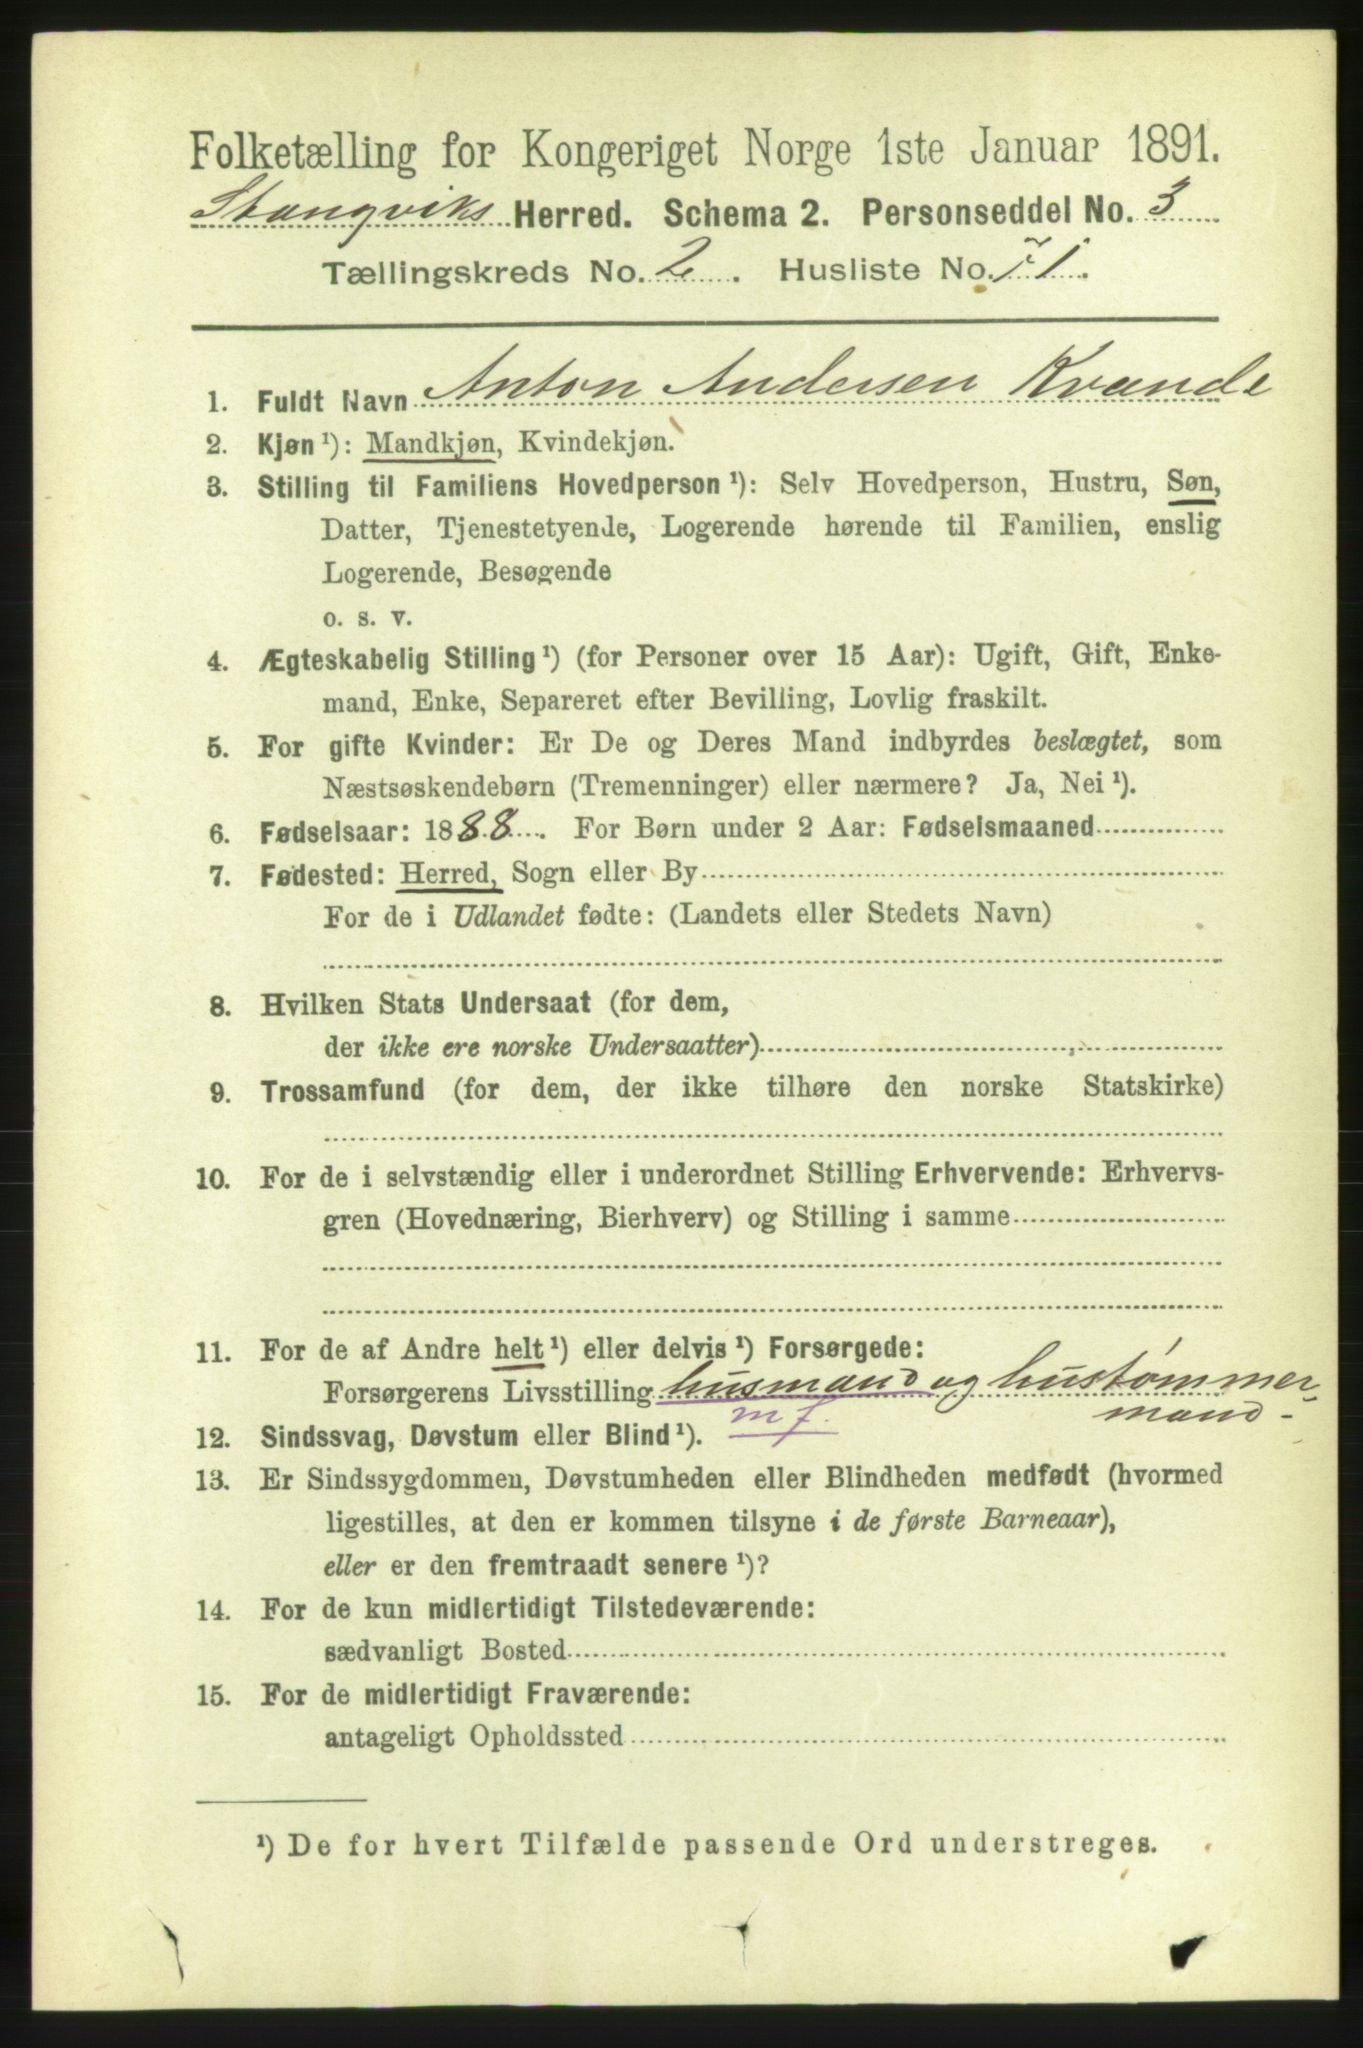 Folketælling for Kongeriget Norge 1ste Januar 1891.
Stangviks Herred. Schema 2. Personseddel No. 3
Tællingskreds No. 2. Husliste No. 71.
1. Fuldt Navn Anton Andersen Kvande
2. Kjøn ¹): Mandkjøn, Kvindekjøn.
3. Stilling til Familiens Hovedperson ¹): Selv Hovedperson, Hustru, Søn,
Datter, Tjenestetyende, Logerende hørende til Familien, enslig
Logerende, Besøgende
o. s. v.
4. Ægteskabelig Stilling ¹) (for Personer over 15 Aar): Ugift, Gift, Enke-
mand, Enke, Separeret efter Bevilling, Lovlig fraskilt.
5. For gifte Kvinder: Er De og Deres Mand indbyrdes beslægtet, som
Næstsøskendebørn (Tremenninger) eller nærmere? Ja, Nei ¹).
6. Fødselsaar: 1888. For Børn under 2 Aar: Fødselsmaaned
7. Fødested: Herred, Sogn eller By
For de i Udlandet fødte: (Landets eller Stedets Navn)
8. Hvilken Stats Undersaat (for dem,
der ikke ere norske Undersaatter)
9. Trossamfund (for dem, der ikke tilhøre den norske Statskirke)
10. For de i selvstændig eller i underordnet Stilling Erhvervende: Erhvervs-
gren (Hovednæring, Bierhverv) og Stilling i samme
11. For de af Andre helt ¹) eller delvis ¹) Forsørgede:
Forsørgerens Livsstilling husmand og hustømmer-
mand -
mf.
12. Sindssvag, Døvstum eller Blind ¹).
13. Er Sindssygdommen, Døvstumheden eller Blindheden medfødt (hvormed
ligestilles, at den er kommen tilsyne i de første Barneaar),
eller er den fremtraadt senere ¹)?
14. For de kun midlertidigt Tilstedeværende:
sædvanligt Bosted
15. For de midlertidigt Fraværende:
antageligt Opholdssted
¹) De for hvert Tilfælde passende Ord understreges.